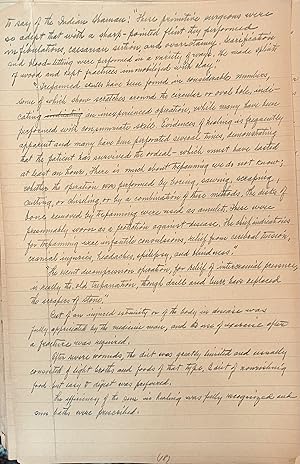 to say of the Indian Shaman: "These primitive surgeons were
so adept that with a sharp-pointed flint they performed
infibulations, cesarean section and ovariotomy. Scarification
and blood-letting were performed in a variety of ways. He made splints
of wood and kept fractures immobilized with clay."
"Trepanned skulls have been found in considerable numbers,
some of which show scratches around the circular or oval hole, indi-
cating an inexperienced operation, while many have been
performed with consummate skill. Evidences of healing is frequently
apparent and many have been perforated several times, demonstrating
that the patient has survived the ordeal - which must have lasted
at least an hour. There is much about trepanning we do not know;
whether the operation was performed by boring, sawing, scraping,
cutting, or chiseling or by a combination of these methods. The discs of
bone removed by trepanning were used as amulets. These were
presumably worn as a protection against disease. The chief indications
for trepanning were infantile convulsions, relief from cerebral tension,
cranial injuries, headaches, epilepsy, and blindness."
"The recent decompression operation, for relief of intracranial pressure,
is really the old trepanation, though drills and burrs have replaced
the scrapers of stone."
Rest of an injured extremity or of the body in disease was
fully appreciated by the medicine man, and its use of exercise after
a fracture was required.
After severe wounds, the diet was greatly limited and usually
consisted of light broths and foods of that type. A diet of nourishing
food but easy to digest was preferred.
The efficiency of the sun in healing was fully recognized and
sun baths were prescribed.
(18)